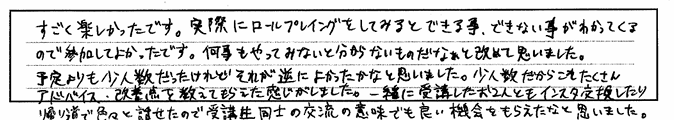 すごく楽しかったです。実際にロールプレイングをしてみるとできる事、できない事がわかってくる
ので参加してよかったです。何事もやってみないと分からないものだなぁと改めて思いました。
予定よりも少人数だったけれどそれが逆によかったかなと思いました。少人数だからこそたくさん
アドバイス・改善点を教えてもらえた感じがしました。一緒に受講したお2人ともインスタ交換したり
帰り道で色々と話せたので受講生同士の交流の意味でも良い機会をもらえたなと思いました。